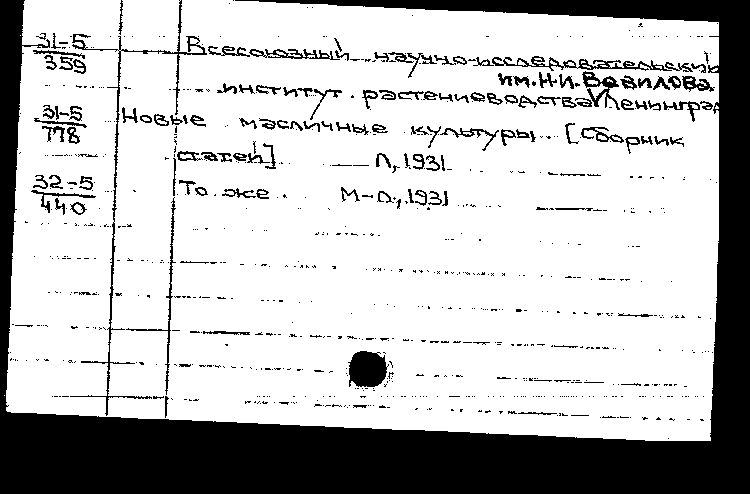 31-5
359
Всесоюзный научно-исследовательский
им. Н.И. Вавилова
институт растениеводства Ленинград
31-5
778
Новые масличные культуры. [Сборник
статей] Л, 1931
32-5
440
То же. М-Л., 1931